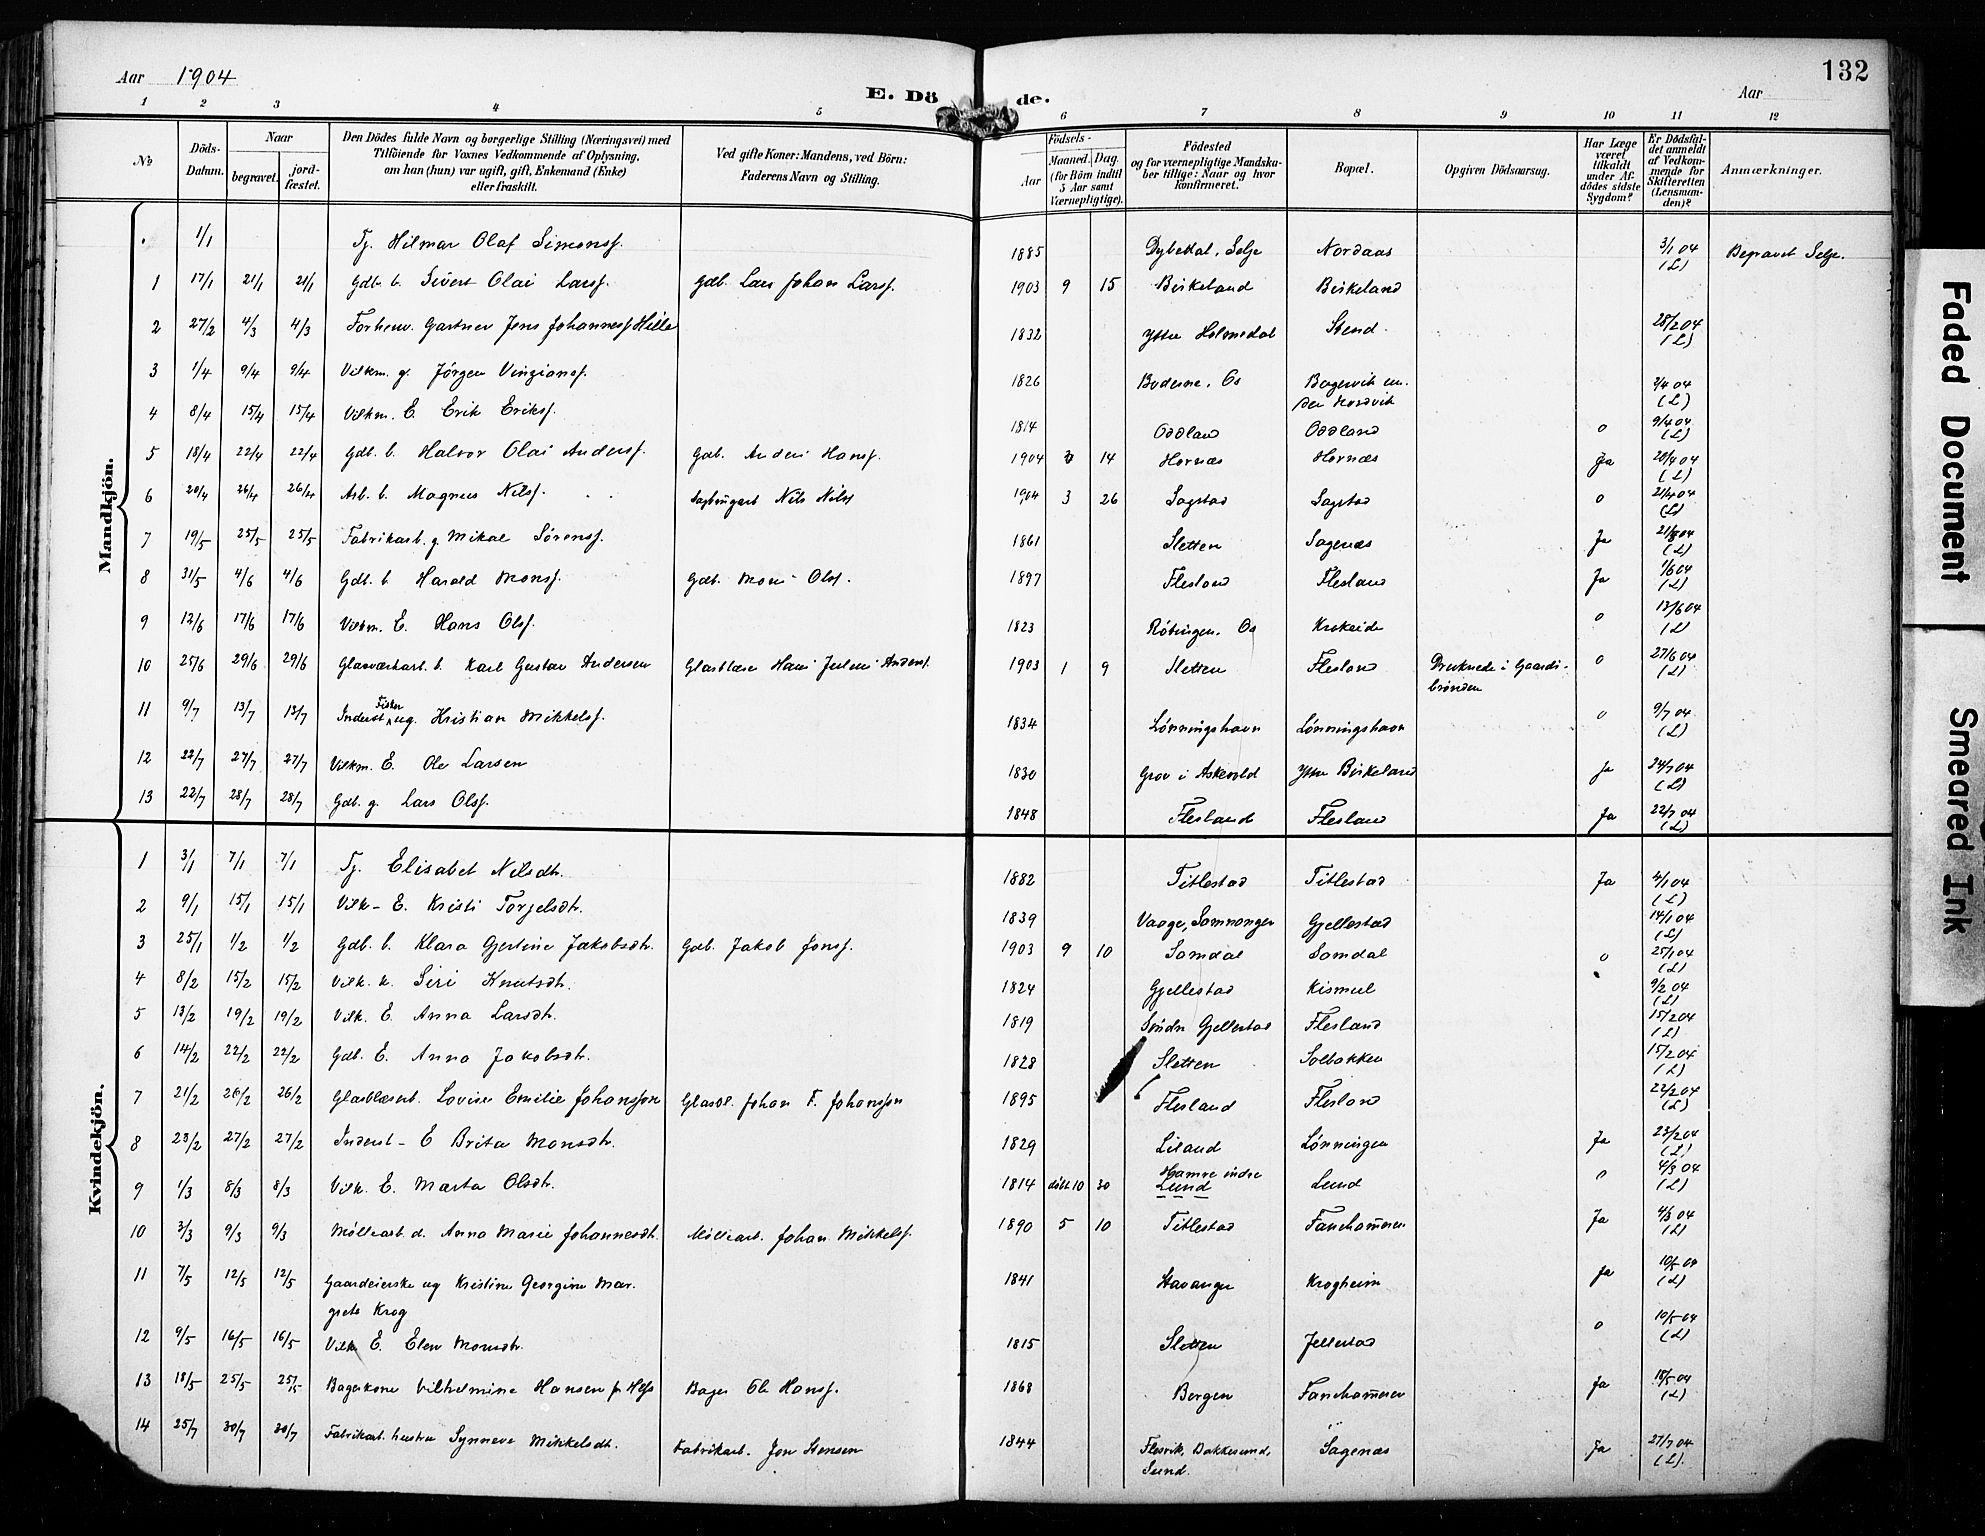 Aar 1904
E. Dö de.
Aar
132
1 2 3 4 5 6 7 8 9 10 11 12
No
Döds-
Datum.
Naar
begravet.
jord-
fæstet.
Den Dödes fulde Navn og borgerlige Stilling (Næringsvei) med
Tilföiende for Voxnes Vedkommende af Oplysning,
om han (hun) var ugift, gift, Enkemand (Enke)
eller fraskilt.
Ved gifte Koner: Mandens, ved Börn:
Faderens Navn og Stilling.
Födsels-
Aar
Maaned. Dag.
(for Börn indtil
5 Aar samt
Værnepligtige).
Födested
og for værnepligtige Mandska-
ber tillige: Naar og hvor
konfirmeret.
Bopæl.
Opgiven Dödsaarsag.
Har Læge
været
tilkaldt
under Af-
dödes sidste
Sygdom?
Er Dödsfal-
det anmeldt
af Vedkom-
mende for
Skifteretten
(Lensman-
den)?
Anmærkninger.
Mandkjön.
1/1 Tj. Hilmar Olaf Simonsf. 1885 Dybedal, Selje Nordaas 3/1 04 (L) Begravet Selje.
1 17/1 21/1 21/1 Gdb. b. Sivert Olai Larsf. Gdb. Lars Johan Larsf. 1903 9 15 Birkeland Birkeland
2 27/2 4/3 4/3 Forhenv. Gartner Jens Johannesf Hille 1832 Ytre Holmedal Stend. 28/2 04 (L)
3 1/4 9/4 9/4 Vilkm. g. Jörgen Vingiansf. 1826 Boderne, Os Bogervik un-
der Hordvik 2/4 04 (L)
4 8/4 15/4 15/4 Vilkm. E. Erik Eriksf. 1814 Oddland Oddland o 9/4 04 (L)
5 18/4 22/4 22/4 Gdb. b. Halvor Olai Andersf. Gdb. Anders Hansf. 1904 14 Hornæs Hornæs Ja 20/4 04 (L)
6 20/4 26/4 26/4 Arb. b. Magnus Nilsf. Nils Nilsf 1904 3 26 Sagstad Sagstad o 21/4 04 (L)
7 19/5 25/5 25/5 Fabrikarb. g. Mikal Sörensf. 1861 Sletten Sagenæs Ja 21/5 04 (L)
8 31/5 4/6 4/6 Gdb. b. Harald Monsf. Gdb. Mons Olsf. 1897 Flesland Flesland Ja 1/6 04 (L)
9 12/6 17/6 17/6 Vilkm. E. Hans Olsf. 1823 Röttingen, Os Krokeide o 13/6 04 (L)
10 25/6 29/6 29/6 Glasværkarb. b. Karl Gustav Andersen Glasblæser Hans Julius Andersf. 1903 1 9 Sletten Flesland Druknede i Gaards-
brönden o 27/6 04 (L)
11 9/7 13/7 13/7 Inderst Fisker ug. Kristian Mikkelsf. 1834 Lönningshavn Lönningshavn o 9/7 04 (L)
12 22/7 27/7 27/7 Vilkm. E. Ole Larsen 1830 Grov i Askevold Ytre Birkeland Ja 24/7 04 (L)
13 22/7 28/7 28/7 Gdb. g. Lars Olsf. 1848 Flesland Flesland Ja 22/7 04 (L)
Kvindekjön.
1 3/1 7/1 7/1 Tj. Elisabet Nilsdtr. 1882 Titlestad Titlestad Ja 4/1 04 (L)
2 9/1 15/1 15/1 Vilk- E. Kristi Torjelsdtr. 1839 Vaage, Samnanger Gjellestad 14/1 04 (L)
3 25/1 1/2 1/2 Gdb. b. Klara Gjertine Jakobsdtr. Gdb. Jakob Jonsf. 1903 9 10 Samdal Samdal o 25/1 04 (L)
4 8/2 15/2 15/2 Vilk. k. Siri Knutsdtr. 1824 Gjellestad Kismul 9/2 04 (L)
5 13/2 19/2 19/2 Vilk. E. Anna Larsdtr. 1819 Söndre Gjellestad Flesland 15/2 04 (L)
6 14/2 22/2 22/2 Gdb. E. Anna Jakobsdtr. 1828 Sletten Solbakken 15/2 04 (L)
7 21/2 26/2 26/2 Glasblæserb. Lovise Emilie Johansson Glasbl. Johan F. Johansson 1895 Flesland Flesland 22/2 04 (L)
8 23/2 27/2 27/2 Inderst- E Brita Monsdtr. 1829 Liland Lönningen Ja 23/2 04 (L)
9 1/3 8/3 8/3 Vilk. E. Marta Olsdtr. 1814 döbt 10 30 Hamre indre
Lund Lund o 4/3 04 (L)
10 3/3 9/3 9/3 Möllearb. d. Anna Marie Johannesdtr. Möllearb. Johan Mikkelsf. 1890 5 10 Titlestad Fanehammeren Ja 4/3 04 (L)
11 7/5 12/5 12/5 Gaardeierske ug Kristine Georgine Mar-
grete Krog 1841 Stavanger Krogheim Ja 10/5 04 (L)
12 9/5 16/5 16/5 Vilk E. Elen Monsdtr. 1815 Sletten Jellestad o 10/5 04 (L)
13 18/5 25/5 25/5 Bagerkone Vilhelmine Hansen f. Bager Ole Hansf. 1868 Bergen Fanehammeren Ja 18/5 04 (L)
14 25/7 30/7 30/7 Fabrikarb. hustru Synneve Mikkelsdtr. Fabrikarb. Jon Stensen 1844 Flesvik, Bakkesund,
Sund. Sagenæs Ja 27/7 04 (L)
Faded Document
Smeared Ink